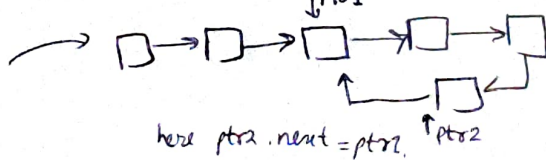 ptr1
here ptr2.next = ptr1.
ptr2